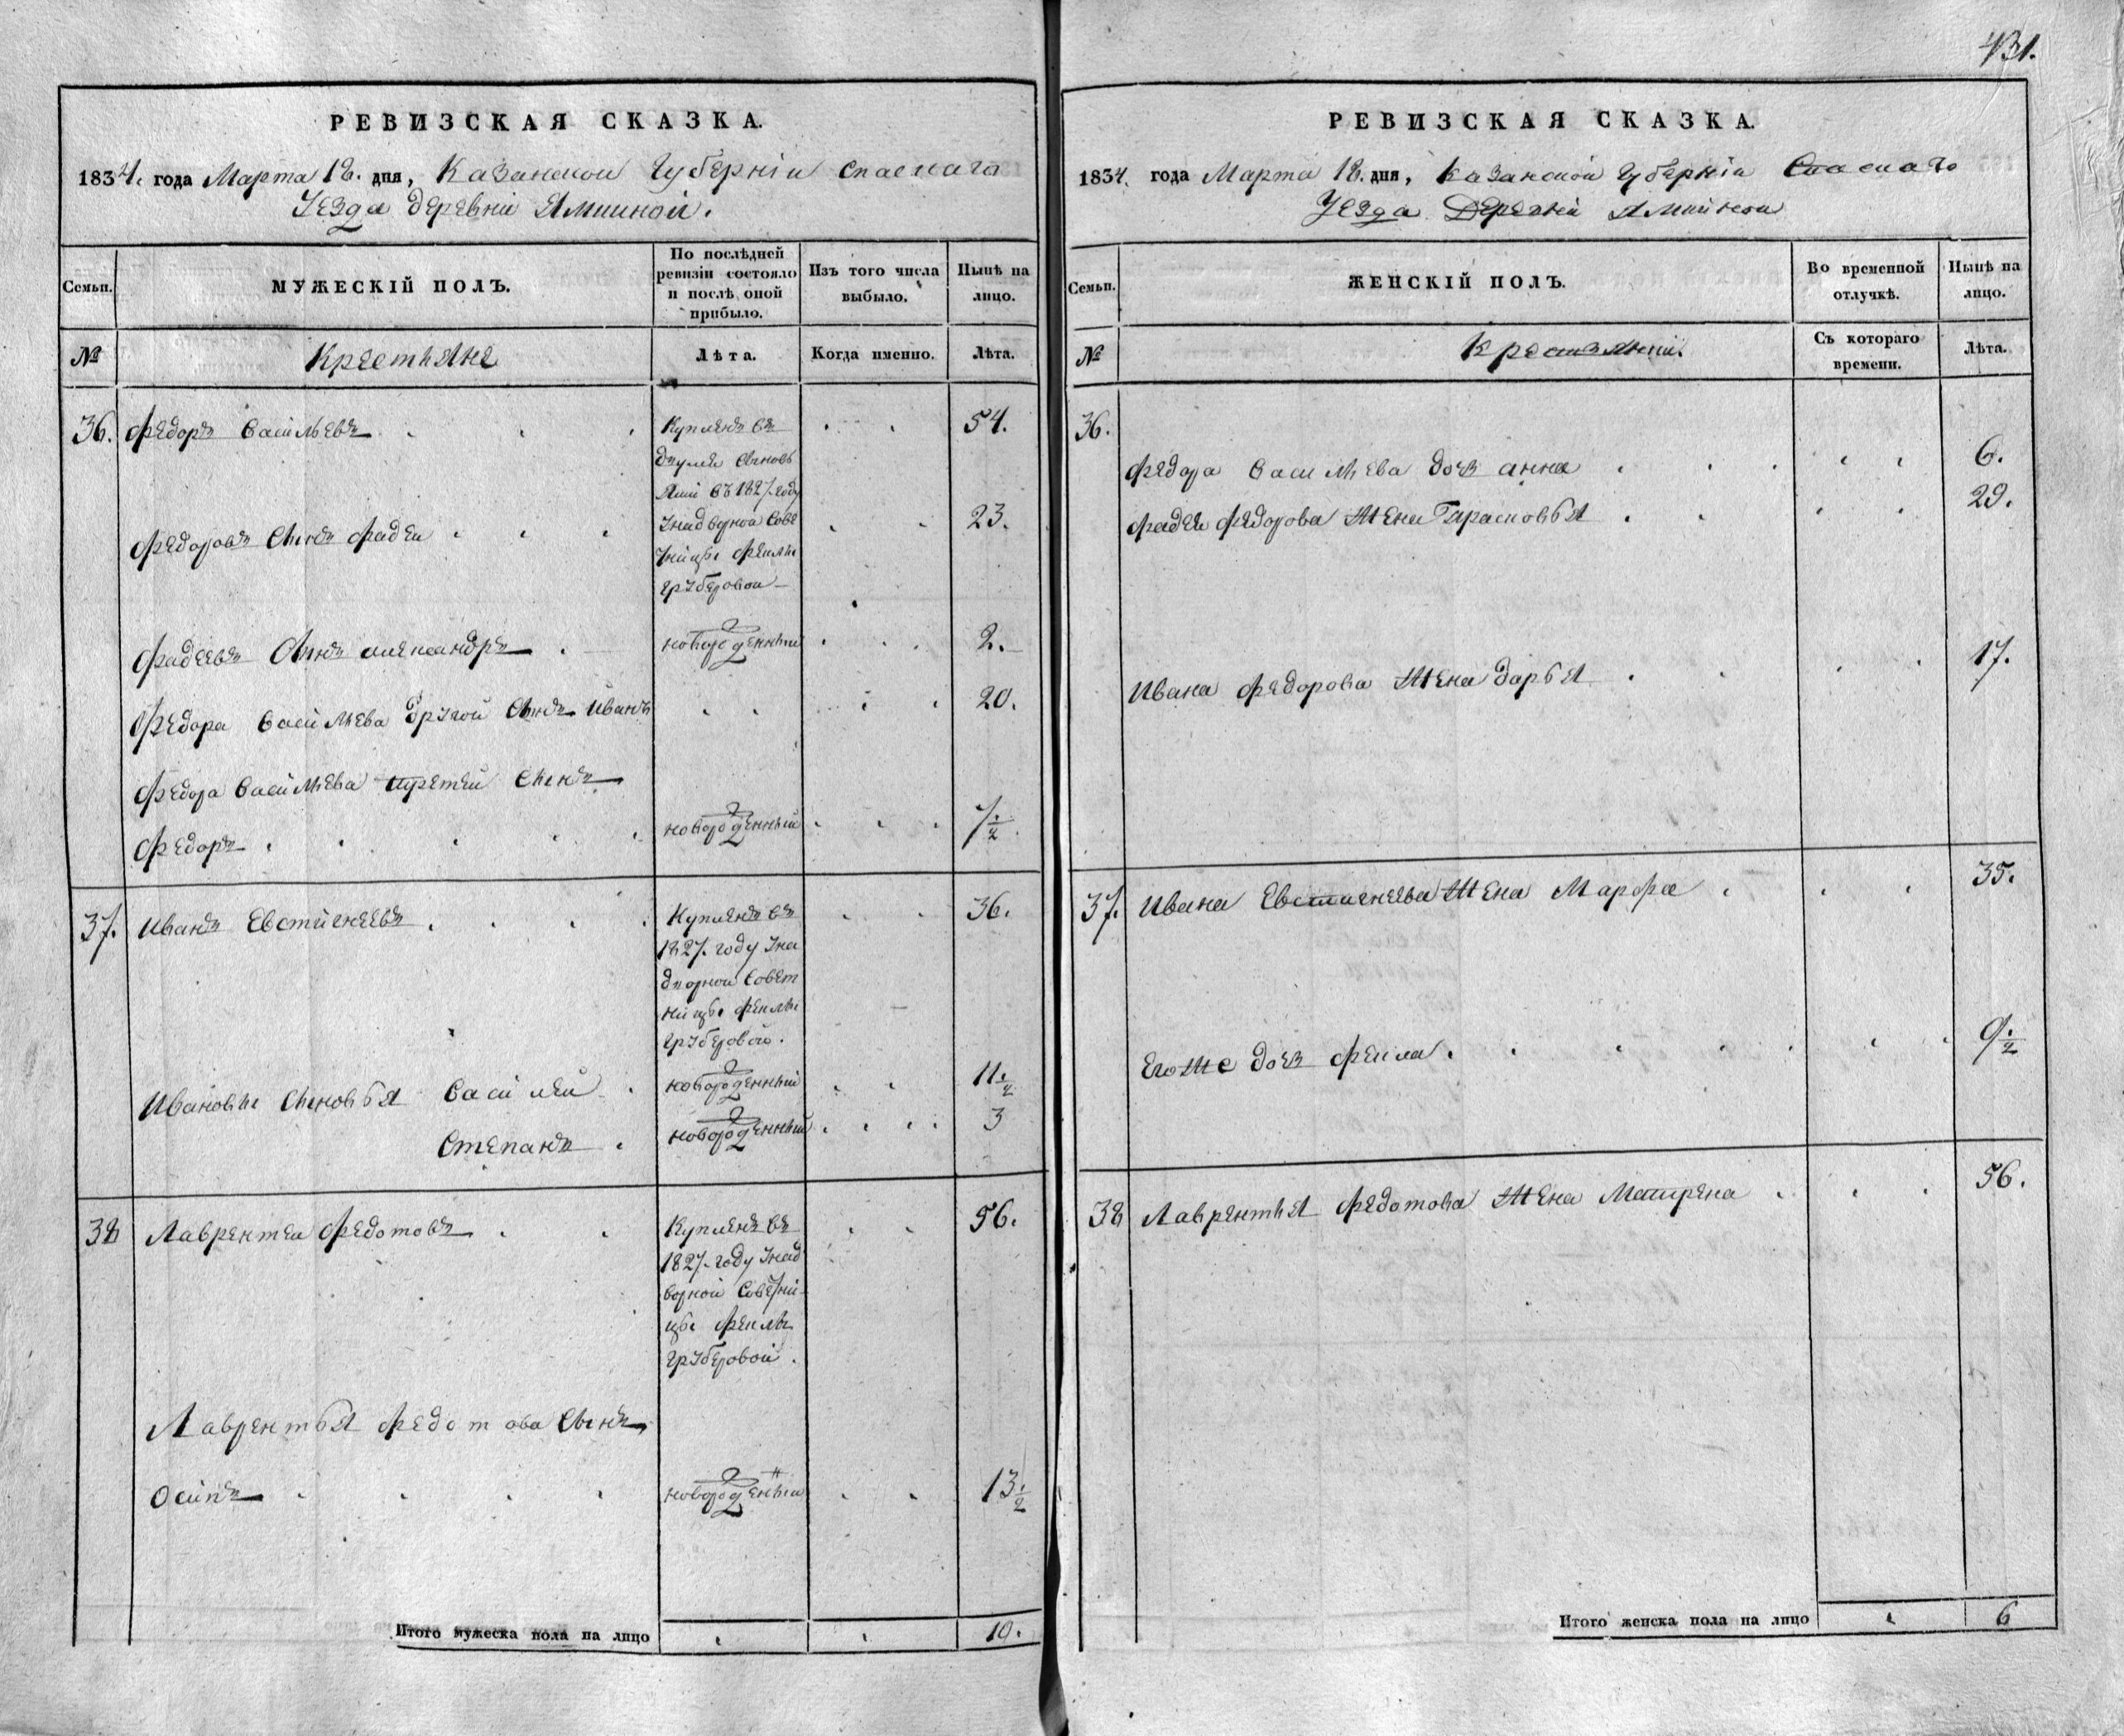 РЕВИЗСКАЯ СКАЗКА.
1834. года Марта 18. дня, Казанской Губерніи Спаскаго
Уезда деревни Ямкиной.
Семьи.
МУЖЕСКІЙ ПОЛЪ.
По послѣдней
ревизіи состояло
и послѣ оной
прибыло.
Изъ того числа
выбыло.
Нынѣ на
лицо.
№
Крестьяне
Лѣта.
Когда именно.
Лѣта.
36. Федоръ Васильевъ
Купленъ въ
54.
въ 1827. году
Федоровъ Сынъ Фадей
Унадворной Сове
23.
тницы Феклы
Груберовой
Фадеевъ Сынъ Александръ
новорожденный
2.
Федора Васильева другой Сынъ Иванъ
20.
Федора Васильева третей Сынъ
Федоръ
новорожденный
1/2
37. Иванъ Евстигнеевъ
Купленъ въ
36.
1827. году Уна
дворной Совет
ницы Феклы
Груберовой.
Ивановы Сыновья Василей
новорожденный
11 1/2
Степанъ
новорожденный
3
38 Лаврентей Федотовъ
Купленъ въ
56.
1827. году Унад
ворной Советни
цы Феклы
Груберовой.
Лаврентья Федотова Сынъ
Осипъ
новорожденный
13 1/2
Итого мужеска пола на лицо
10.
431.
РЕВИЗСКАЯ СКАЗКА.
1834. года Марта 18. дня, Казанской Губерніи Спаскаго
Уезда Деревни Ямкиной
Семьи.
ЖЕНСКІЙ ПОЛЪ.
Во временной
отлучкѣ.
Нынѣ на
лицо.
№
Крестьянки.
Съ котораго
времени.
Лѣта.
36.
Федора Васильева дочь Анна
6.
Фадея Федорова Жена Парасковья
29.
Ивана Федорова Жена Дарья
17.
37. Ивана Евстигнеева Жена Марфа
35.
Егоже дочь Фекла
9 1/2
38 Лаврентья Федотова Жена Матрена
56.
Итого женска пола на лицо
6